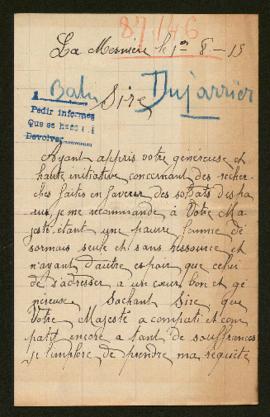 87146
La Mesnière le 1er 8 - 15
Sire
Dujarrier
Pedir informes
Que se haga
Devolver
Ayant appris votre généreuse et
haute initiative concernant des recher
ches faites en faveur des soldats dispa
rus, je me recommande à Votre Ma
jesté, étant une pauvre femme dé
sormais seule et sans ressource et
n'ayant d'autre espoir que celui
de s'adresser a un cœur bon et gé
néreuse Sachant Sire que
Votre Majesté a compati et com
patit encore a tant de souffrances
je l'implore de prendre ma requête